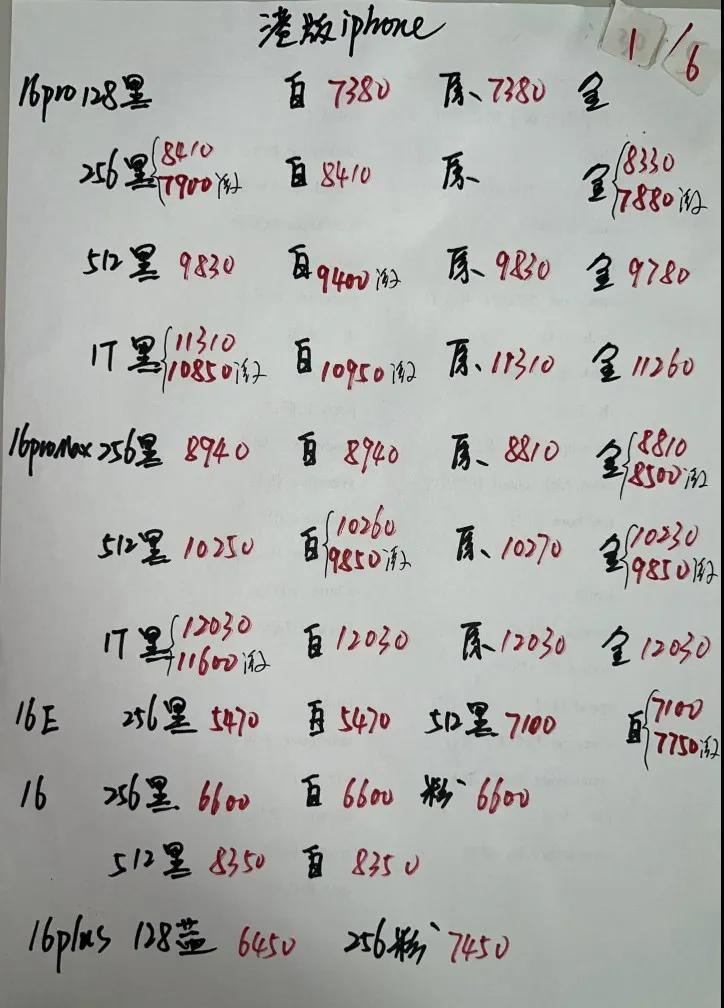 港版iphone 1/6
16pro 128黑 白 7380 原、7380 金
256黑{8410 7900激 白 8410 原、 金{8330 7880激
512黑 9830 白 9400激 原、9830 金 9780
1T黑{11310 10850激 白 10950激 原、11310 金 11260
16proMax 256黑 8940 白 8940 原、8810 金{8810 8500激
512黑 10250 白{10260 9850激 原、10270 金{10230 9850激
1T黑{12030 11600激 白 12030 原、12030 金 12030
16E 256黑 5470 白 5470 512黑 7100 白{7100 7750激
16 256黑 6600 白 6600 粉 6600
512黑 8350 白 8350
16plus 128蓝 6450 256粉 7450